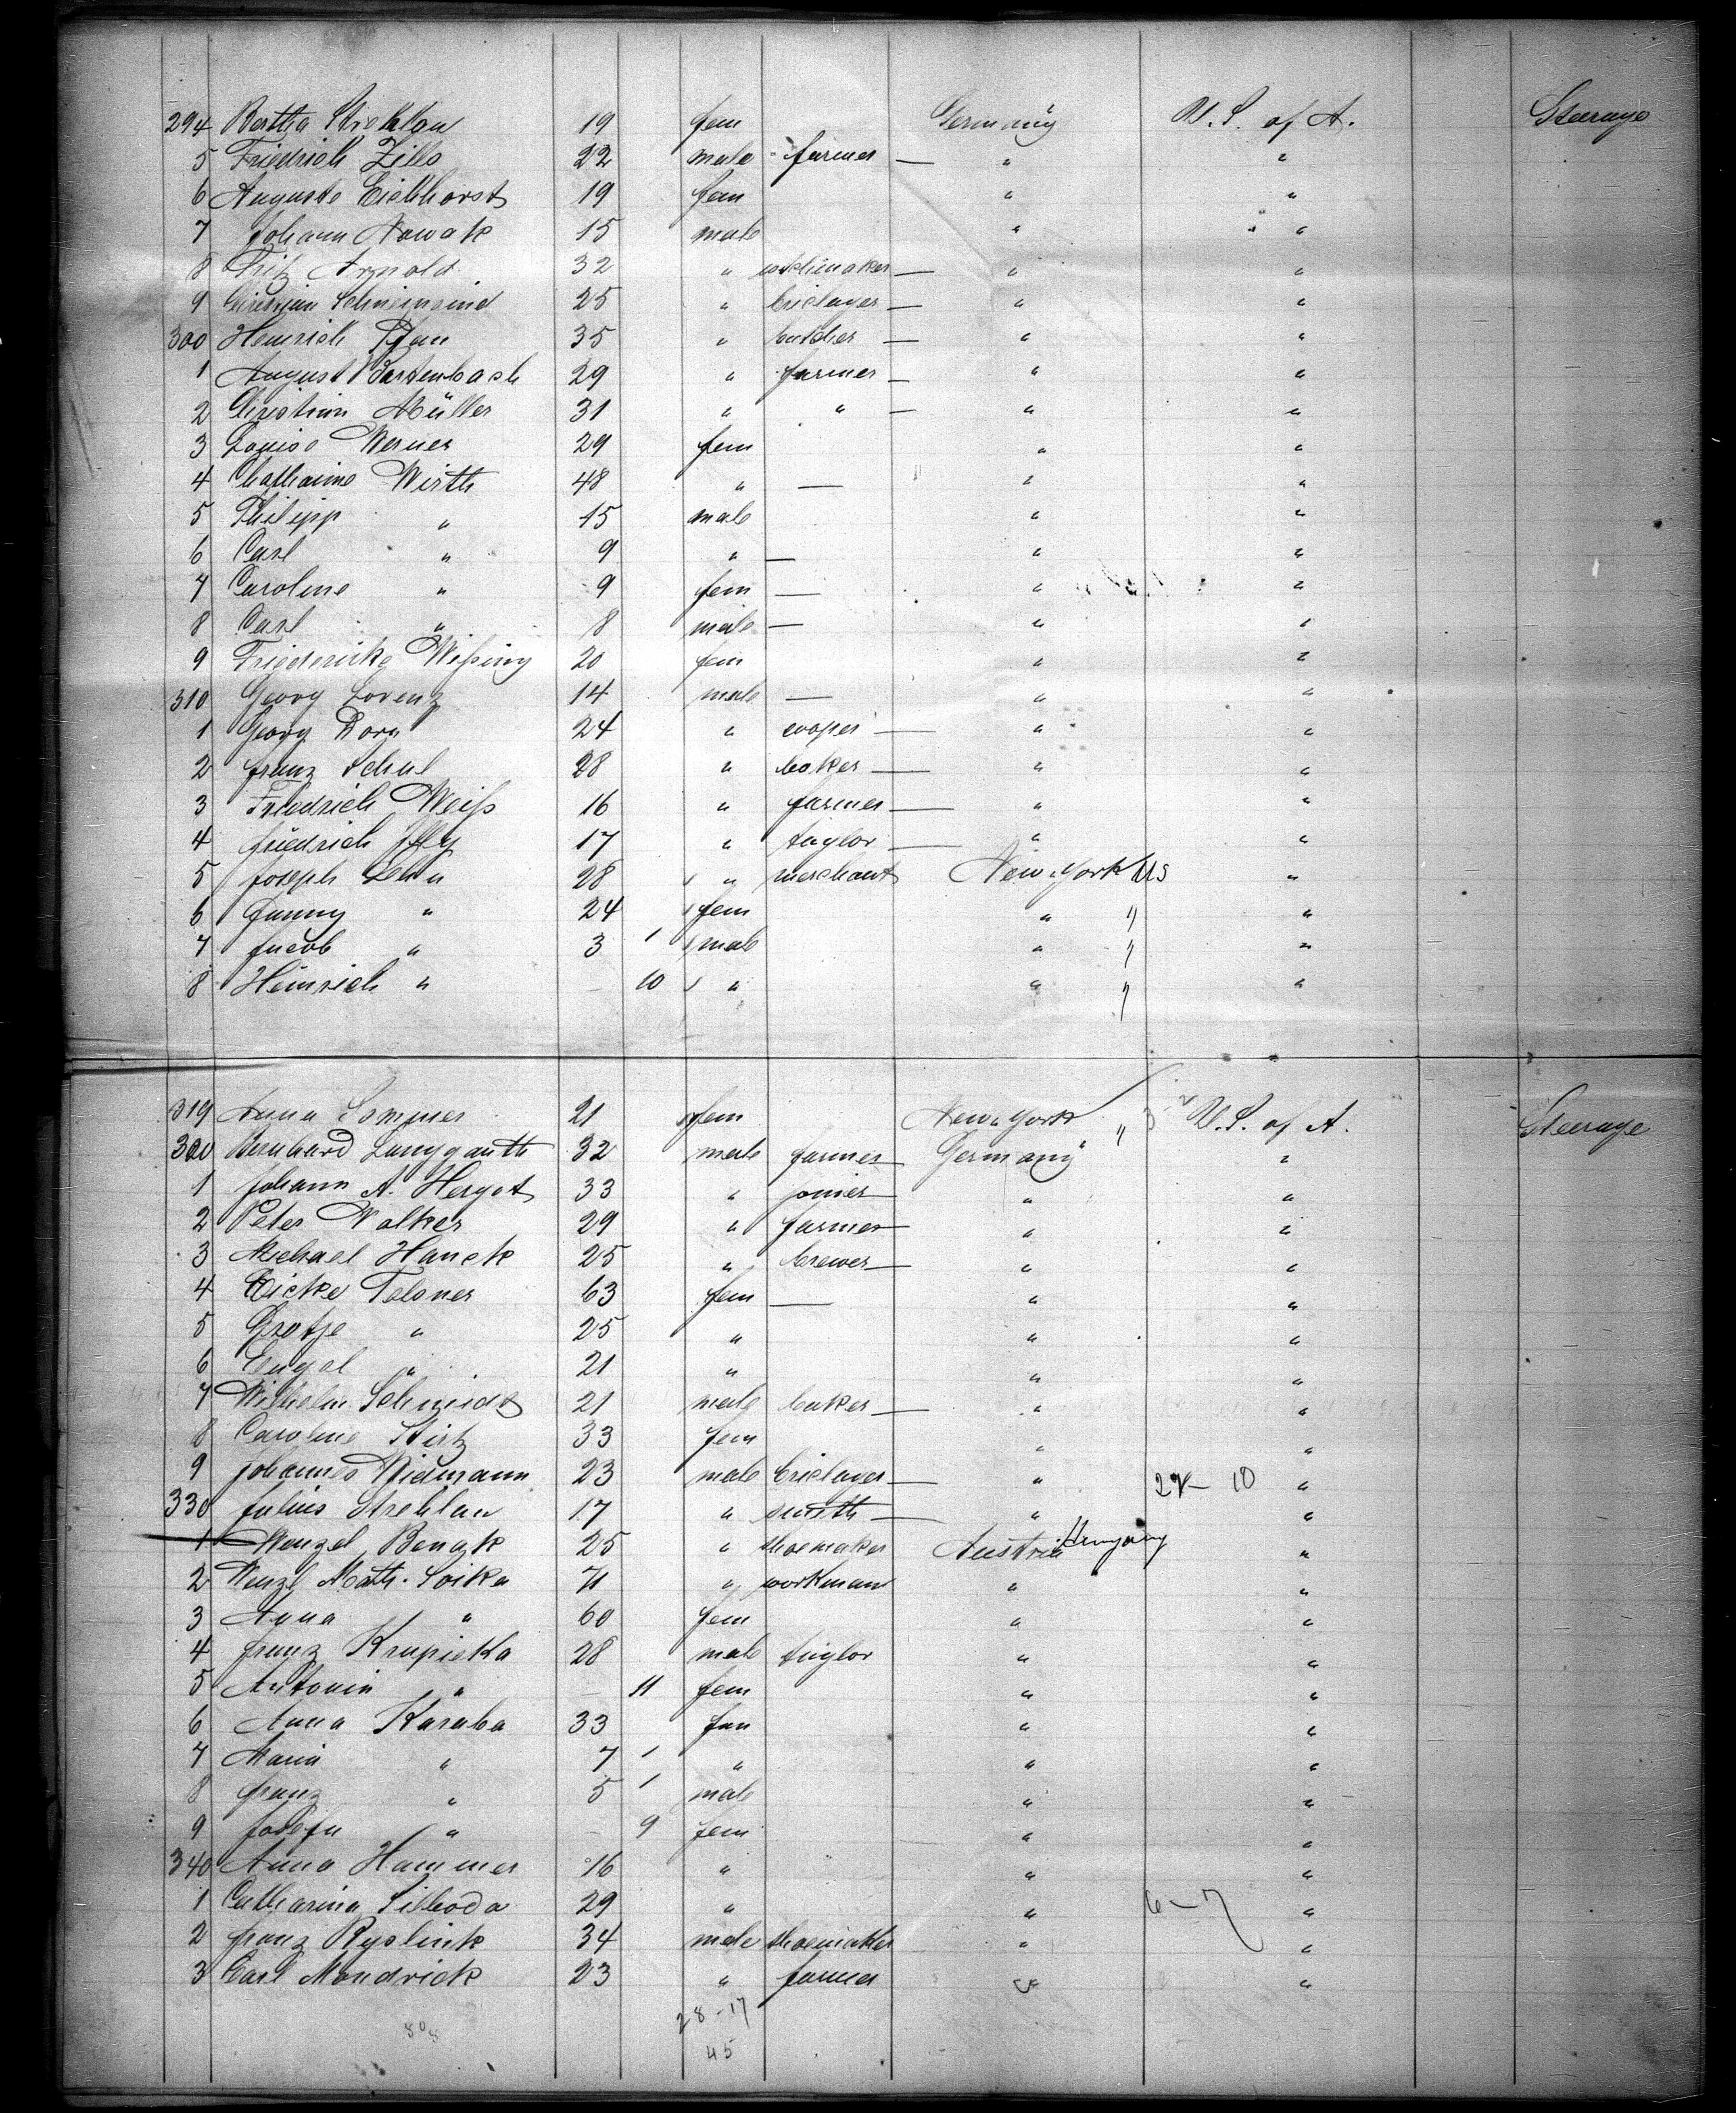 294 Bertha Strehlau 19 fem Germany U.S. of A. Steerage
5 Friedrich Zills 22 male farmer — " "
6 Auguste Eichhorst 19 fem " "
7 Johann Nowak 15 male " "
8 Fritz Arnold 32 " — " "
9 Christian 25 " briclayer — " "
300 Heinrich 35 " butcher — " "
1 August Wartenbach 29 " farmer — " "
2 Christian Müller 31 " " — " "
3 Louise Werner 29 fem " "
4 Chatharine Wirth 48 " — " "
5 Philipp " 15 male " "
6 Carl " 9 " — " "
7 Caroline " 9 fem — " "
8 Carl " 8 male — " "
9 Friedericke Wißing 20 fem " "
310 Georg Lorenz 14 male — " "
1 Georg Dorn 24 " cooper — " "
2 Franz Schul 28 " baker — " "
3 Friedrich Weiß 16 " farmer — " "
4 Friedrich 17 " taylor — " "
5 Joseph Lehn 28 " merchant New York US "
6 Fanny " 24 fem " " "
7 Jacob " 3 male " " "
8 Heinrich " 10 " " " "
319 Anna Sommer 21 fem New York " U.S. of A. Steerage
320 Bernhard Langguth 32 male farmer — Germany "
1 Johann A. Hergot 33 " joiner — " "
2 Peter Walker 29 " farmer — " "
3 Michael Hauck 25 " brewer — " "
4 Eicke 63 fem — " "
5 Gretje " 25 " " "
6 Engel " 21 " " "
7 Wilhelm Schmidt 21 male baker — " "
8 Caroline 33 fem " "
9 Johannes Widmann 23 male briclayer — " 28 — 10 "
330 Julius Strehlau 17 " smith — " "
1 Wenzel Benak 25 " shoemaker Austria Hungary "
2 Wenzl Math. Soika 71 " workman " "
3 Anna " 60 fem " "
4 Franz Krupicka 28 male taylor " "
5 Antonin " — 11 fem " "
6 Anna Karaba 33 fem " "
7 Maria " 7 " " "
8 Franz " 5 male " "
9 Josefa " — 9 fem " "
340 Anna Hammer 16 " " "
1 Catharina 29 " " 6-7 "
2 Franz Ryslink 34 male shoemaker " "
3 Carl Mondrick 23 " farmer " "
28-17
45